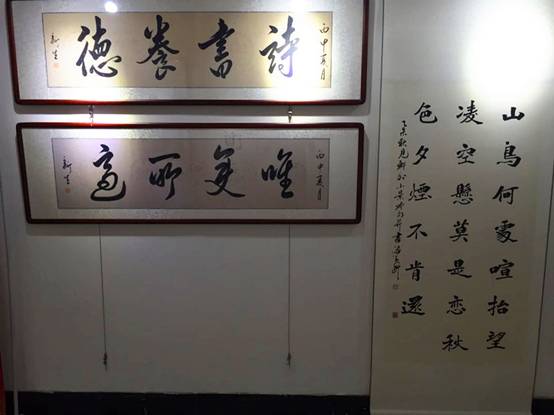 丙申夏月
詩書養德
丙申夏月
唯變所適
山鳥何處喧抬望
凌空懸莫是恋秋
色夕煙不肯還